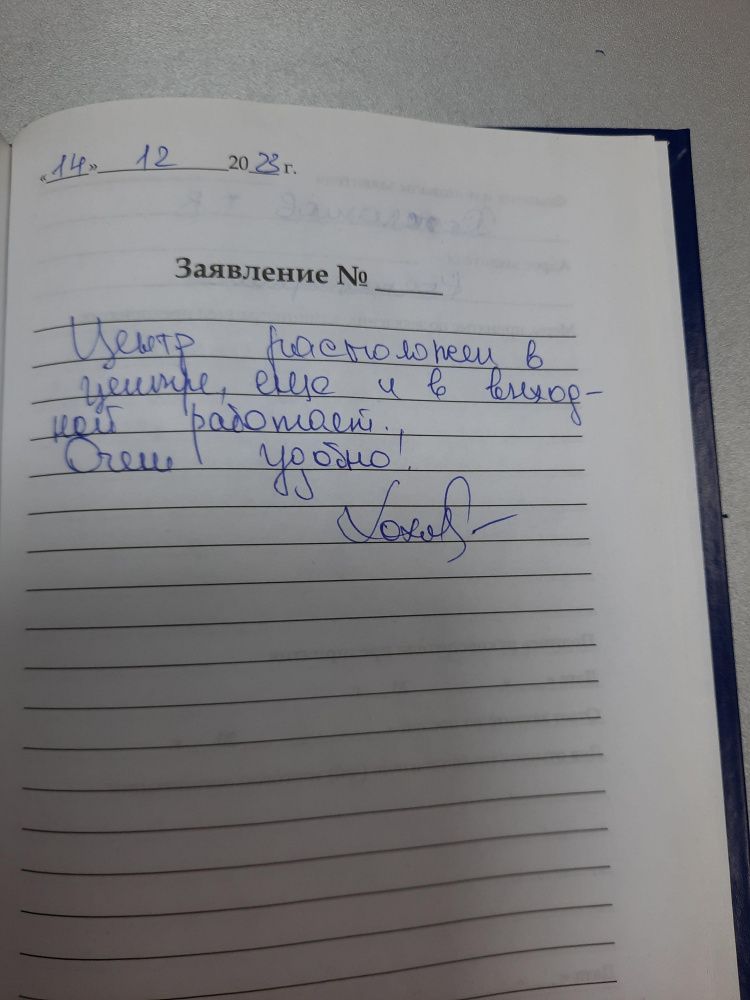 «14» 12 2023 г.
Заявление № ____
Центр расположен в
центре, еще и в выход-
ной работает.
Очень удобно!